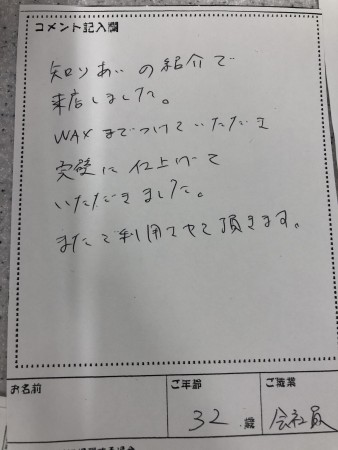 コメント記入欄
知りあいの紹介で
来店しました。
WAXまでつけていただき
完璧に仕上げて
いただきました。
またご利用させて頂きます。
お名前
ご年齢
ご職業
32 歳
会社員